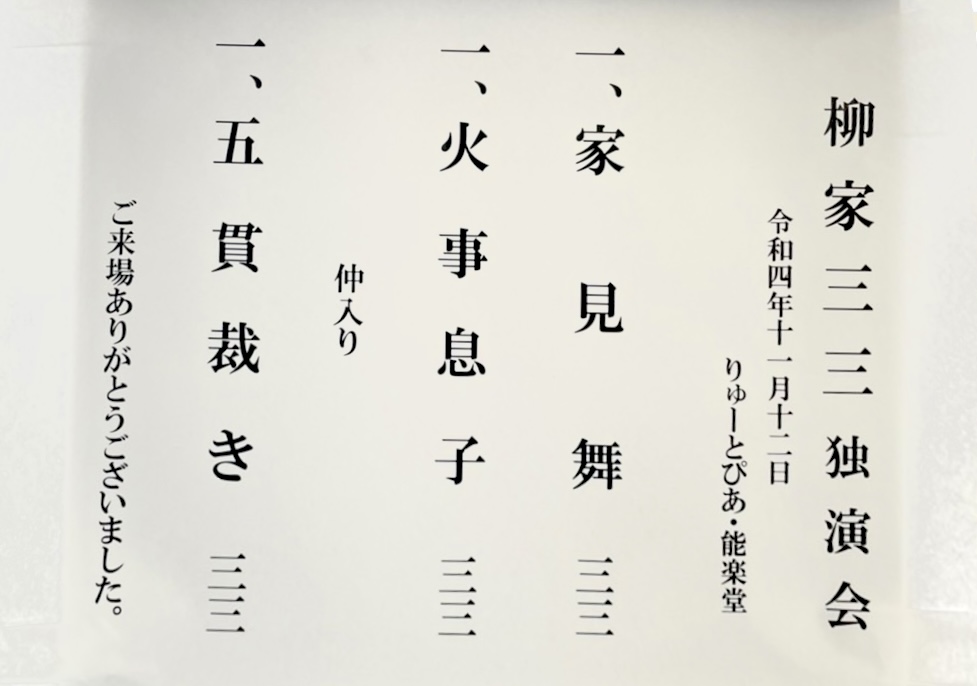 柳家三三独演会
令和四年十一月十二日
りゅーとぴあ・能楽堂
一、家見舞 三三
一、火事息子 三三
仲入り
一、五貫裁き 三三
ご来場ありがとうございました。